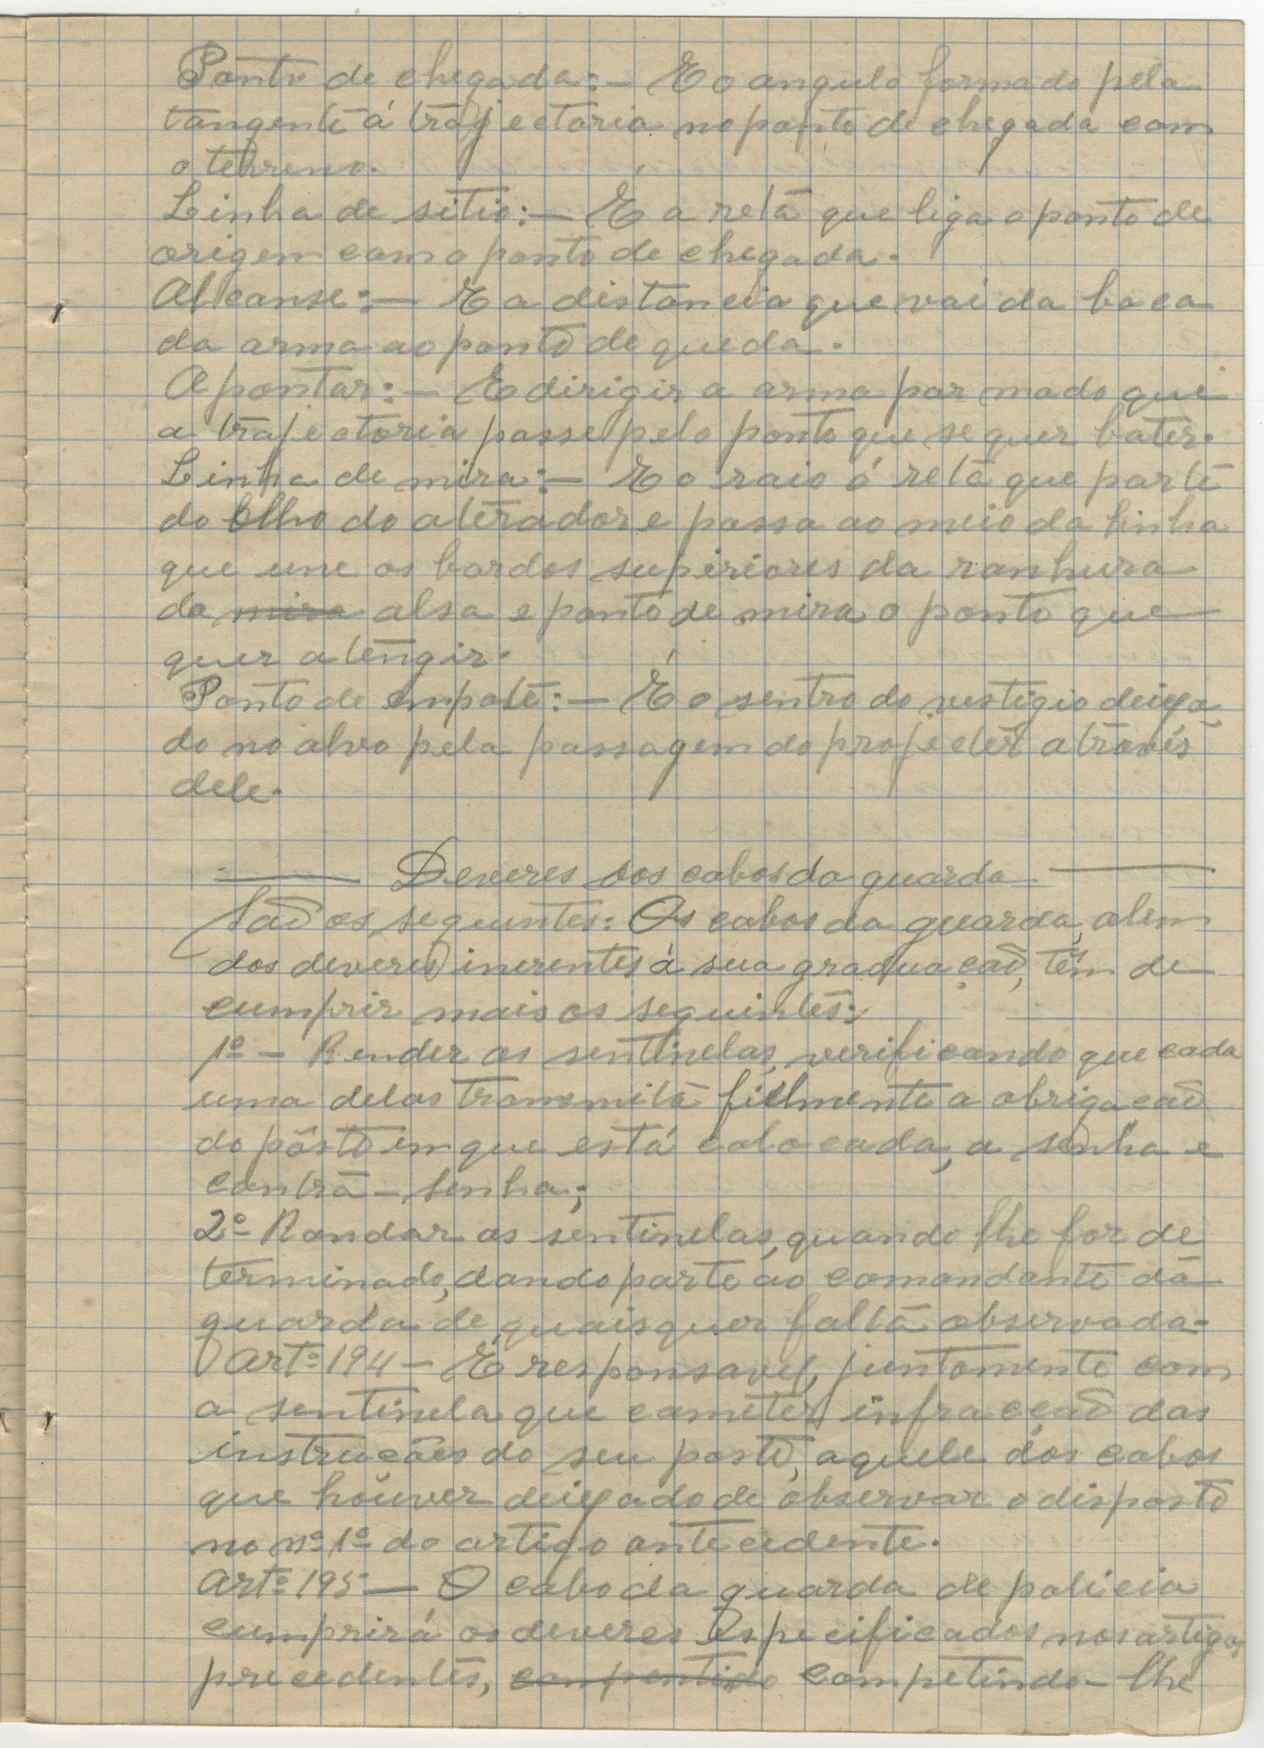 Ponto de chegada:- E o angulo formado pela
tangente á trajectoria no ponto de chegada com
o terreno.
Linha de sitio:- É a reta que liga o ponto de
origem com o ponto de chegada.
Alcanse:- E a distancia que vai da boca
da arma ao ponto de queda.
Apontar:- E dirigir a arma por modo que
a trajectoria passe pelo ponto que se quer bater.
Linha de mira:- E o raio ó reta que parte
do olho do aterador e passa ao meio da linha
que une os bordos supiriores da ranhura
da mira alsa e ponto de mira o ponto que
quer atengir.
Ponto de empate:- É o sentro do vestigio deixa
do no alvo pela passagem do projectel através
dele.
Deveres dos cabos da guarda
Saõ os seguntes: Os cabos da guarda, alem
dos deveres inerentes á sua graduaçaõ, têm de
cumprir mais os seguintes:
1º - Render as sentinelas, verificando que cada
uma delas transmita fielmente a obrigacaõ
do pôsto em que está colocada, a senha e
contra-senha;
2º- Rondar as sentinelas, quando lhe for de
terminado, dando parte ao comandante da
guarda de quaisquer falta observada-
Artº 194- É responsavel, juntamente com
a sentinela que cometer infracçaõ das
instrucões do seu posto, aquele dos cabos
que houver deixado de observar o disposto
no nº 1º do artigo antecedente.
Artº 195- O cabo da guarda de policia
cumprirá os deveres especificados nos artigos
precedentes, competindo-lhe